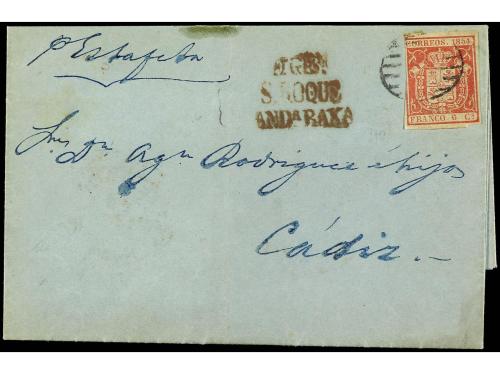 pr Estafeta
S. ROQUE
ANDARAXA
CORREOS. 1854
FRANCO 6 Cs
Sres Dn Agn Rodriguez é hijos
Cádiz.-